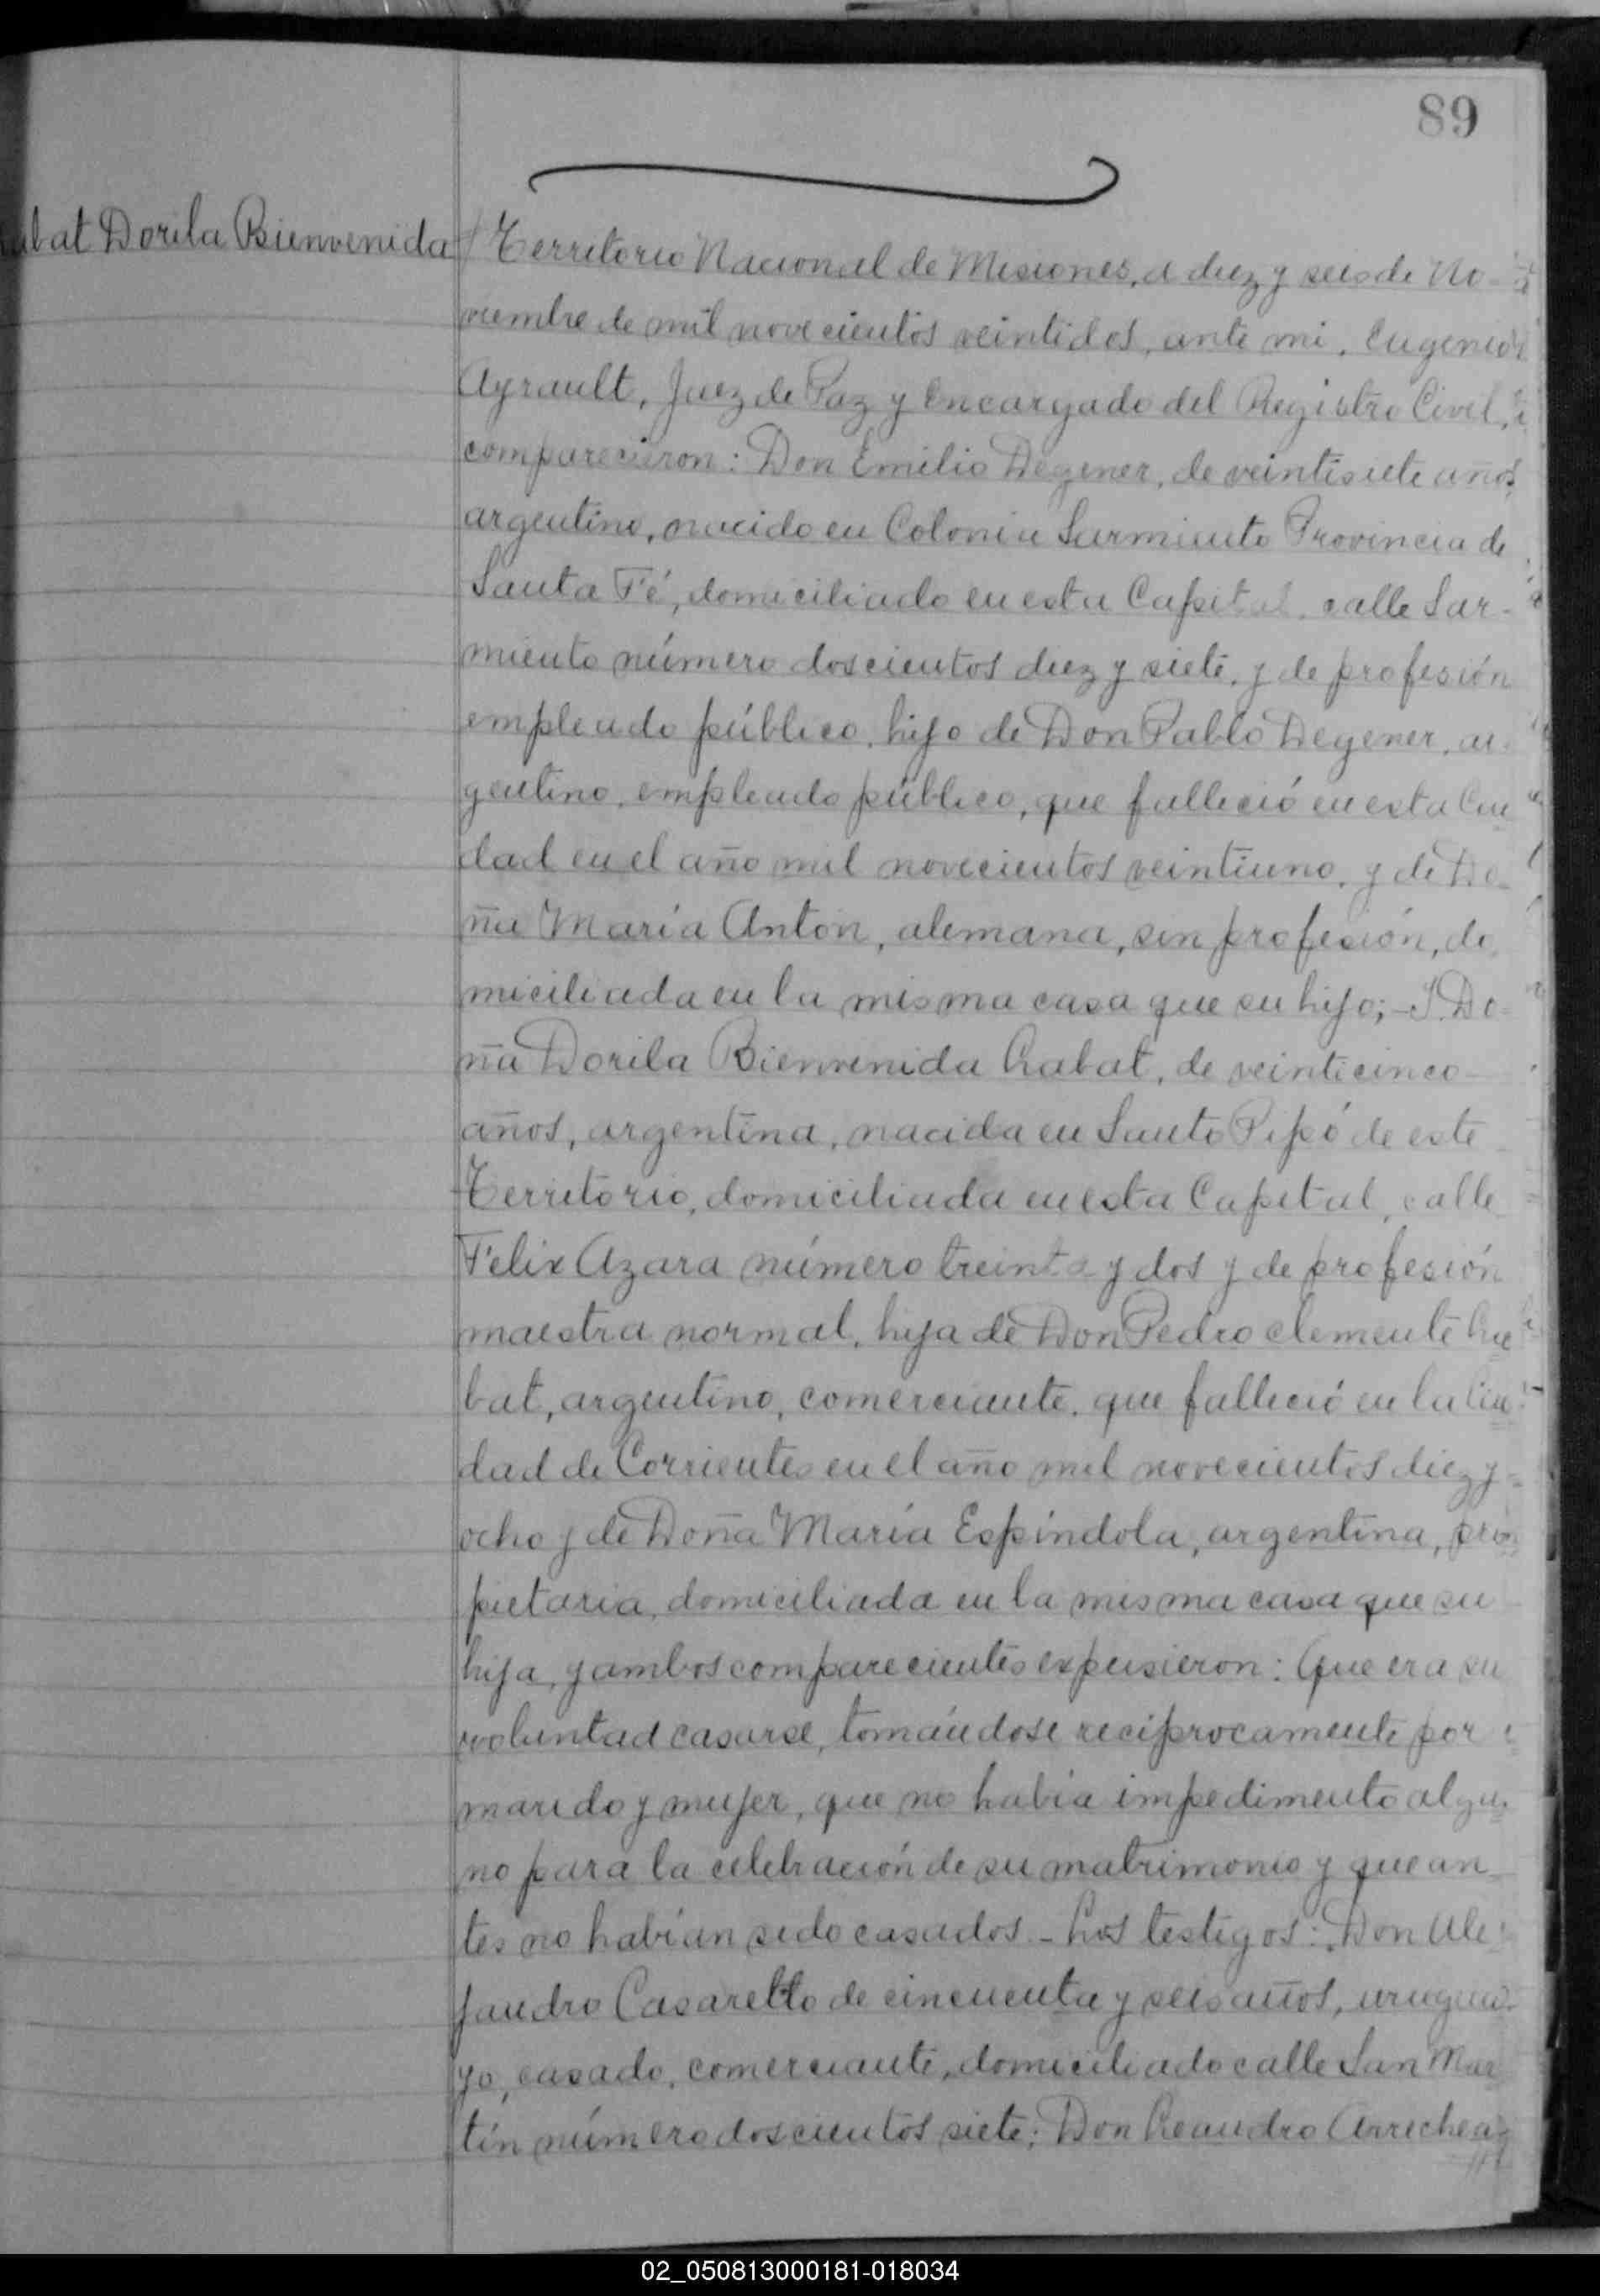 89
abat Dorila Bienvenida
Territorio Nacional de Misiones, a diez y seis de No-
viembre de mil novecientos veintidos, ante mi, Eugenio
Ayrault, Juez de Paz y Encargado del Registro Civil,
comparecieron: Don Emilio Degener, de veintisiete años,
argentino, nacido en Colonia Sarmiento Provincia de
Santa Fé, domiciliado en esta Capital, calle Sar-
miento número doscientos diez y siete, y de profesión
empleado público, hijo de Don Pablo Degener, ar-
gentino, empleado público, que falleció en esta Ciu
dad en el año mil novecientos veintiuno, y de Do-
ña María Anton, alemana, sin profesión, do
miciliada en la misma casa que su hijo;- Y Do-
ña Dorila Bienvenida Labat, de veinticinco
años, argentina, nacida en Santo Pipó de este
Territorio, domiciliada en esta Capital, calle
Felix Azara número treinta y dos y de profesión
maestra normal, hija de Don Pedro clemente La
bat, argentino, comerciante, que falleció en la Ciu
dad de Corrientes en el año mil novecientos diez y
ocho y de Doña María Espíndola, argentina, pro
pietaria, domiciliada en la misma casa que su
hija, y ambos comparecientes expusieron: Que era su
voluntad casarse, tomándose recíprocamente por
marido y mujer, que no había impedimento algu
no para la celebración de su matrimonio y que an
tes no habían sido casados - Los testigos: Don Ale
jandro Casaretto de cincuenta y seis años, urugua
yo, casado, comerciante, domiciliado calle San Mar
tín número doscientos siete; Don Leandro Arrechea
02_050813000181-018034